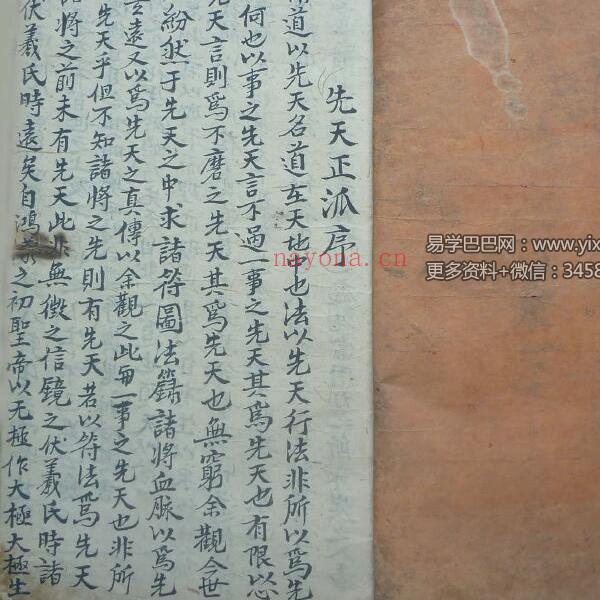 先天正派序
道以先天名道在天地中也法以先天行法非所以為先
何也以事之先天言不過一事之先天其為先天也有限
先天言則為不磨之先天其為先天也無窮余觀今世
紛然于先天之中求諸符圖法籙諸將血脉以為先
言遠又以為先天之真傳以余觀之此毎一事之先天也非所
先天乎但不知諸將之先則有先天若以符法為先天
諸將之前未有先天此非無徵之信鏡之伏羲氏時諸
伏羲氏時遠矣自鴻之初聖帝以无極作大極大極生
nayona.cn
易学巴巴网：www.yix
更多资料+微信：3458